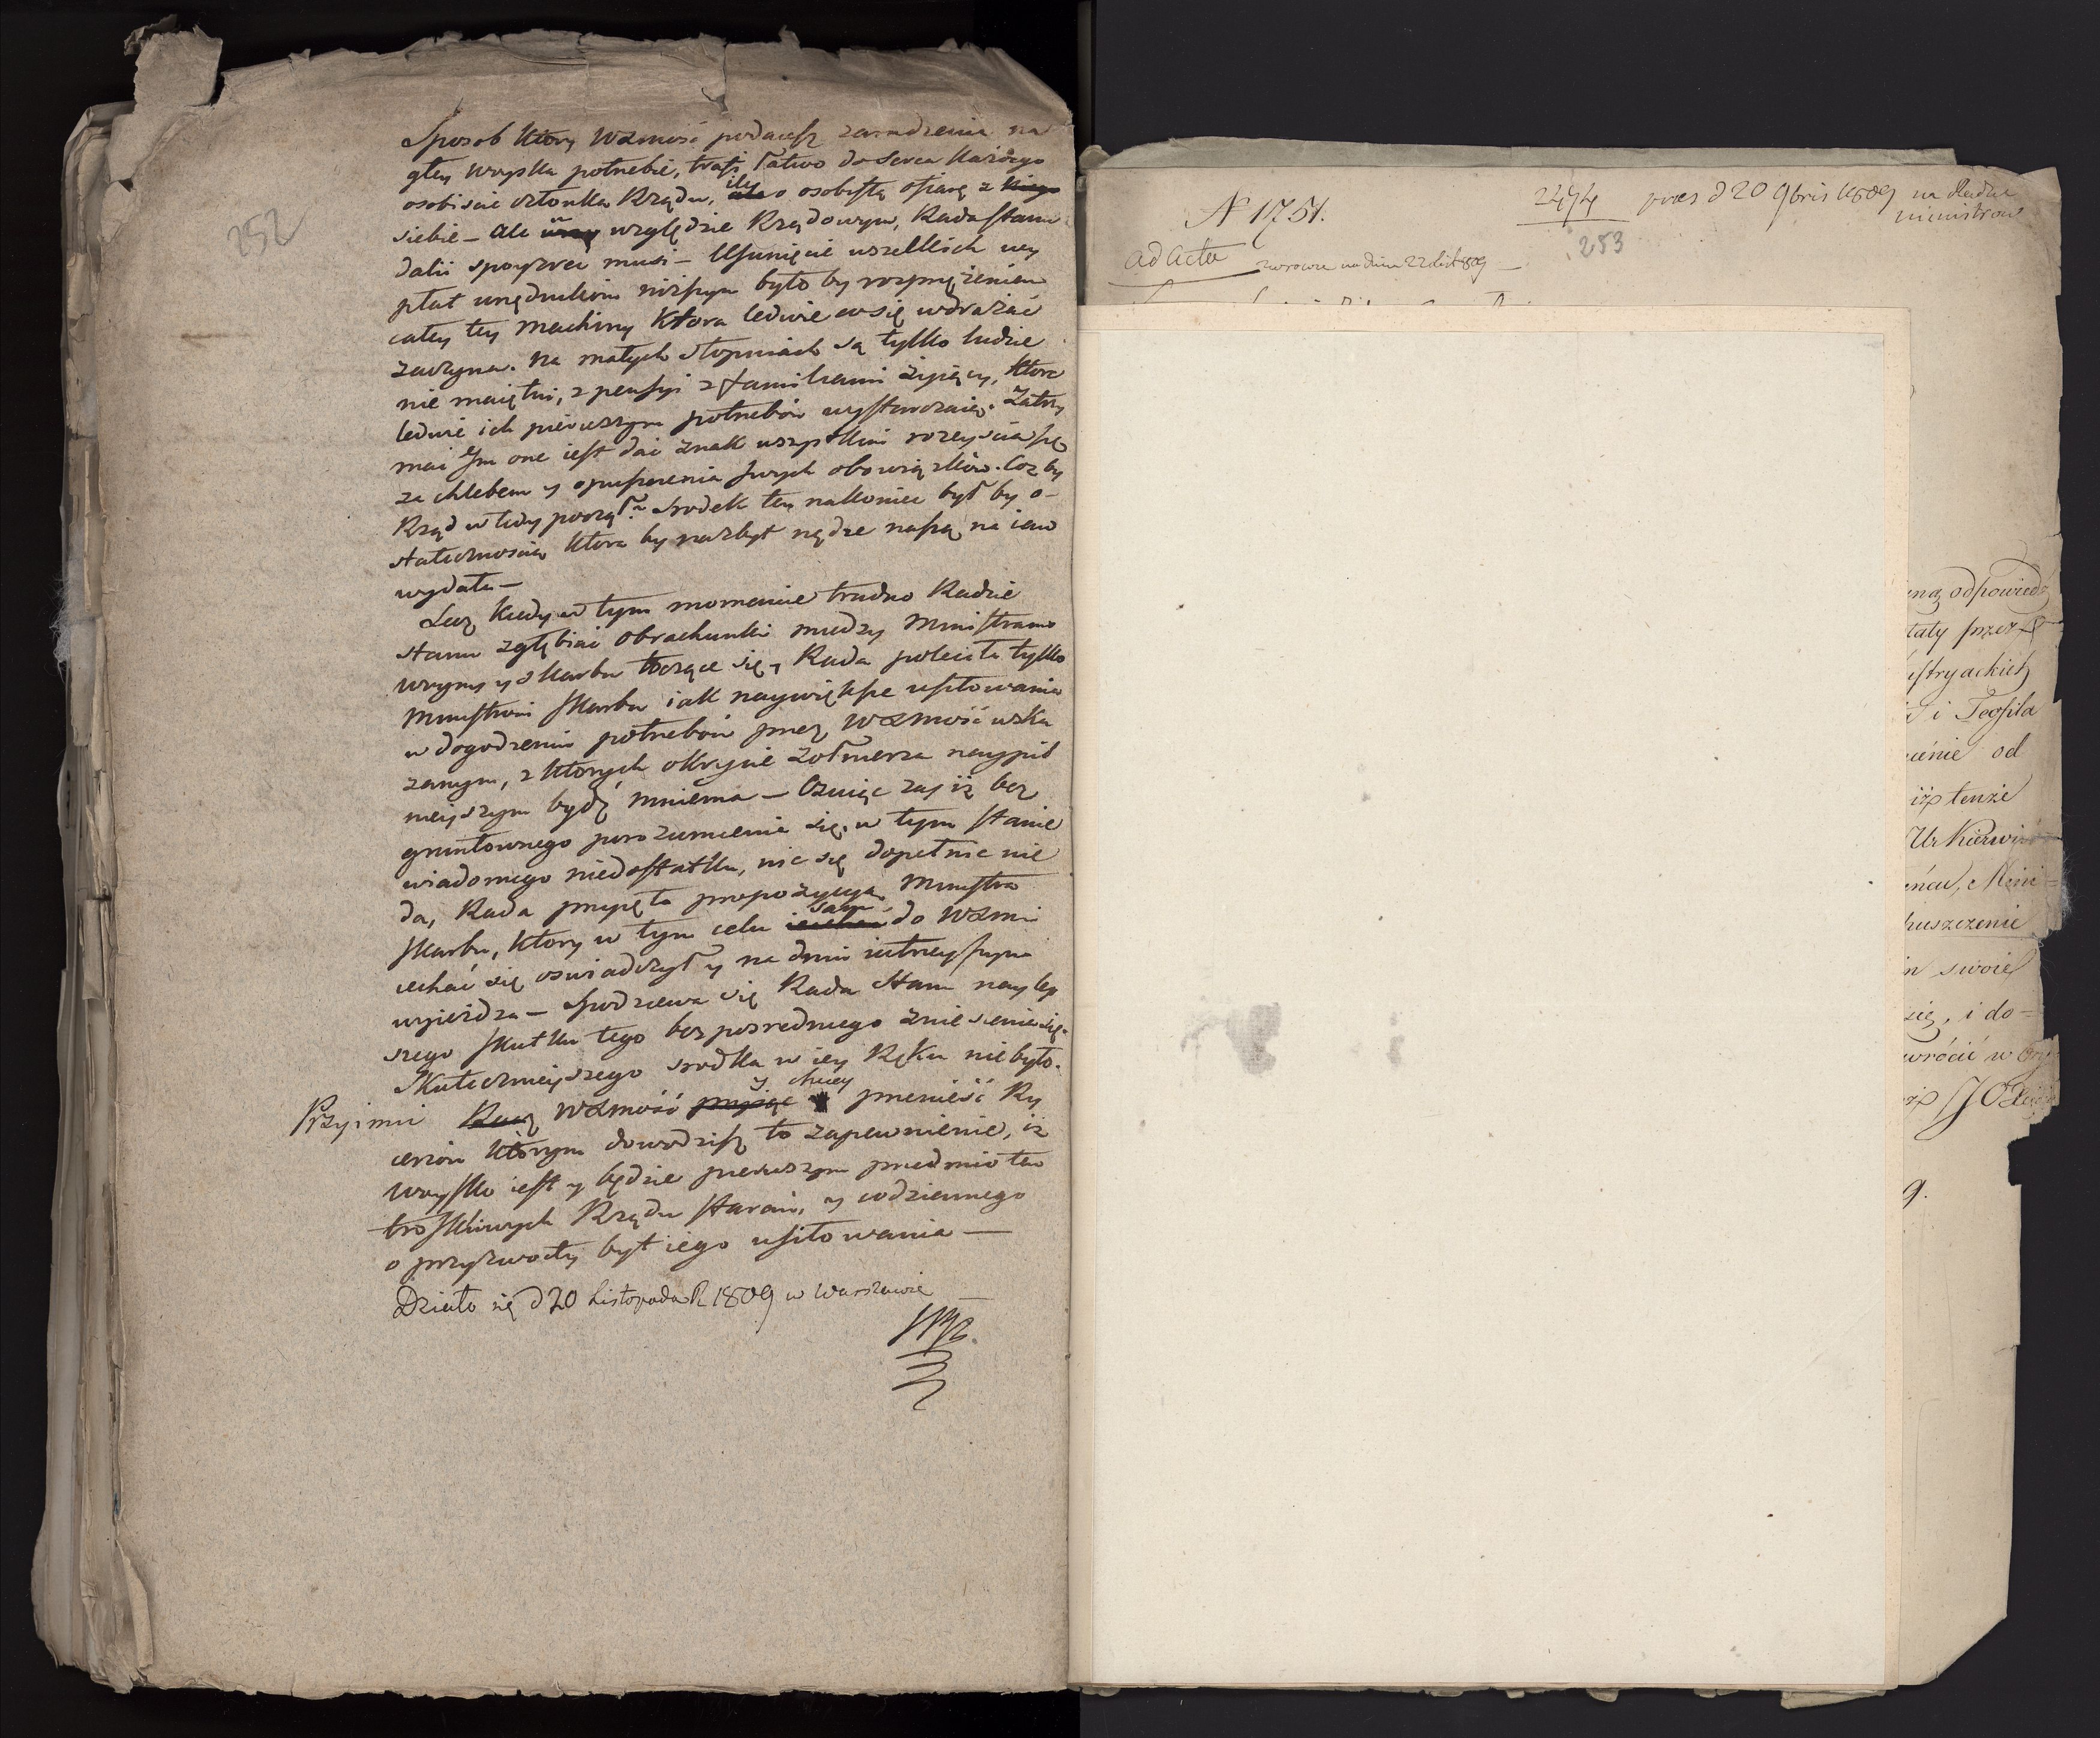 252
Sposob ktory WXmość podaiesz zaradzenia na
głey woyska potrzebie, trafi łatwo do serca każdego
osobiscie członka Rządu, ily o osobistą ofiarę z
siebie – ale w względzie Rządowym, Rada Stanu
dalii spoyrzeć musi – Usunięcie wszelkich wy
płat urzędnikom niższym było by rozprzężeniem
całey tey machiny ktora ledwie co się wdrażać
zaczyna. Na małych stopniach są tylko ludzie
nie maiętni, z pensyi z familiami żyiący, ktore
ledwie ich pierwszym potrzebom wystarczaią. Zatrzy
mać Im one iest dać znak wszystkim rozeyścia się
za chlebem y opuszczenia swych obowiązków. Coz by
Rząd w tedy począł? Srodek ten nakoniec był by o-
statecznoscią ktora by nazbyt nędze naszą na iaw
wydała –
Lecz kiedy w tym momencie trudno Radzie
Stanu zgłębiać obrachunki między Ministrami
Woyny y Skarbu toczące się, Rada poleciła tylko
Ministrowi Skarbu iak naywiększe usiłowania
w dogodzeniu potrzebom przez WXmość wska
zanym, z ktorych okrycie żołnierza naypil
nieyszym bydź mniema – Czuiąc zaś iż bez
gruntownego porozumienia się w tym stanie
wiadomego niedostatku, nic się dopełnić nie
da, Rada przyięła propozycyą Ministra
Skarbu, ktory w tym celu sam do WXmci
iechać się oswiadczył y na dniu iutrzeyszym
wyieżdza – Spodziewa się Rada Stanu naylep
szego skutku tego bezposredniego zniesienia się.
Skutecznieyszego srodka w iey Ręku nie było.
Przyimii WXmość y chciey przenieść Ry
cerzom ktorym dowodzisz to zapewnienie, iż
woysko iest y będzie pierwszym przedmiotem
troskliwych Rządu starań, y codziennego
o przyzwoity byt iego usiłowania –
Działo się d 20 Listopada R 1809 w Warszawie
N 1751.
2494
præs d 20 9bris 1809 na Radzie
ministrow
253
ad Acta
na dniu 22 List 1809
odpowiedź
tały przez
stryackich
i Teofila
od
iż tenże
puszczenie
swoie
i do=
wrócić w
9.